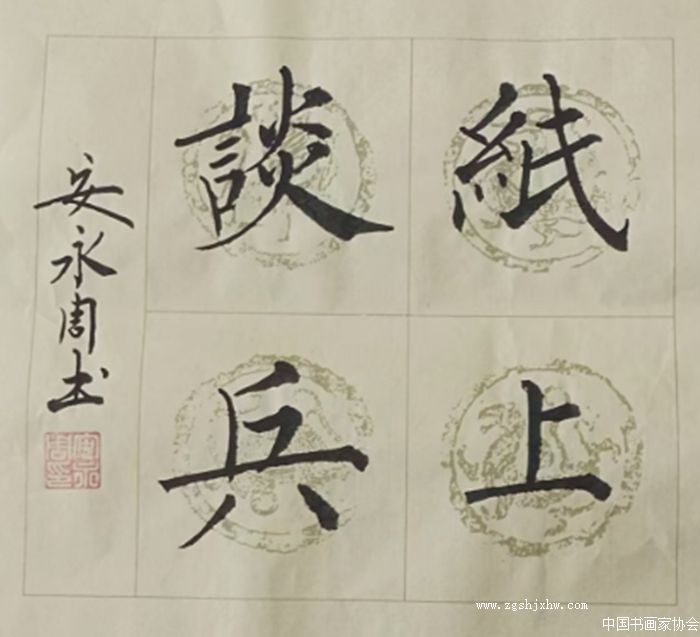 紙上
談兵
安永周书
www.zgshjxhw.com
中国书画家协会